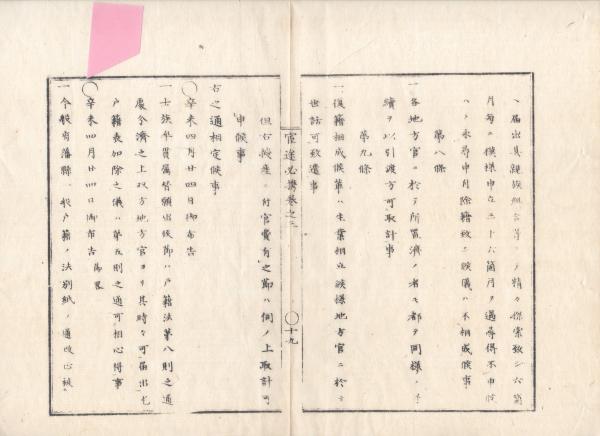 届出其親族組合等ニテ精々探索致シ六箇
月毎ニ模様申立三十六箇月ヲ過尋得不申時
ハ永尋申付除籍致シ候儀ハ不相成候事
第八條
一各地方官ニ於テ所置濟ノ者モ都テ同様ノ手
續ヲ以引渡方可取計事
第九條
一復籍相成候輩ハ生業相立候様地方官ニ於テ
世話可致遣事
官途必携巻之二
十九
但右授産ニ付官費有之節ハ伺ノ上取計可
申候事
右之通相定候事
辛未四月廿四日御布告
一士族卒貫属替願出候節ハ戸籍法第八則之通
處令濟之上双方地方官ヨリ其時々可届出尤
戸籍表加除之儀ハ第五則之通可相心得事
辛未四月廿四日御布告
一今般府藩縣一般戸籍ノ法別紙ノ通改正被